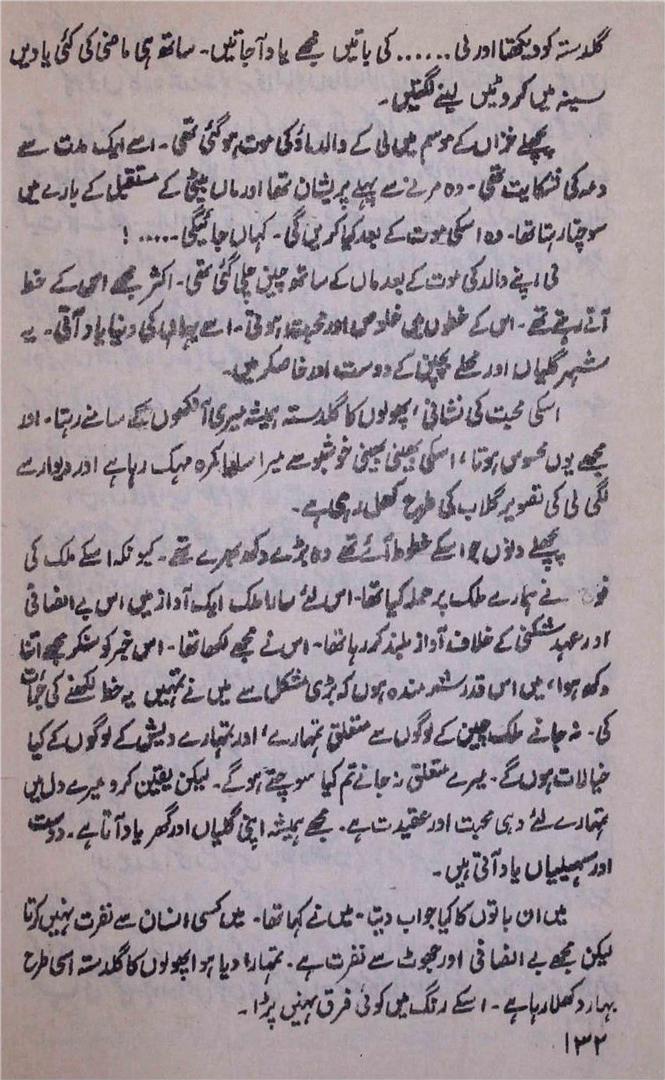 گلدستہ کو دیکھتا اور لی...... کی باتیں مجھے یاد آجاتیں۔ ساتھ ہی ماضی کی کئی یادیں
سینہ میں کروٹیں لینے لگتیں۔
پچھلے خزاں کے موسم میں لی کے والد ماؤ کی موت ہو گئی تھی۔ اسے ایک مدت سے
دمہ کی شکایت تھی۔ وہ مرنے سے پہلے پریشان تھا اور ماں بیٹی کے مستقبل کے بارے میں
سوچتا رہتا تھا۔ وہ اسکی موت کے بعد کیا کریں گی۔ کہاں جائینگی..... !
لی اپنے والد کی موت کے بعد ماں کے ساتھ چین چلی گئی تھی۔ اکثر مجھے اسی کے خط
آتے رہتے تھے۔ اس کے خطوں میں خلوص اور محبت ہوتی۔ اسے یہاں کی دنیا یاد آتی۔ یہ
شہر گلیاں اور محلے بچپن کے دوست اور خاصکر میں۔
اسکی محبت کی نشانی، پھولوں کا گلدستہ ہمیشہ میری آنکھوں کے سامنے رہتا۔ اور
مجھے یوں محسوس ہوتا، اسکی بھینی بھینی خوشبو سے میرا سارا کمرہ مہک رہا ہے اور دیوار سے
لگی لی کی تصویر گلاب کی طرح کھل رہی ہے۔
پچھلے دنوں جو اسکے خطوط آئے تھے وہ بڑے دکھ بھرے تھے۔ کیونکہ اسکے ملک کی
فوج نے ہمارے ملک پر حملہ کیا تھا۔ اس لئے سارا ملک ایک آواز میں اس بے انصافی
اور عہد شکنی کے خلاف آواز بلند کر رہا تھا۔ اس نے مجھے لکھا تھا۔ اس خبر کو سنکر مجھے اتنا
دکھ ہوا، میں اس قدر شرمندہ ہوں کہ بڑی مشکل سے میں نے تمہیں یہ خط لکھنے کی جرأت
کی۔ نہ جانے ملک چین کے لوگوں سے متعلق تمہارے، اور تمہارے دیش کے لوگوں کے کیا
خیالات ہوں گے۔ میرے متعلق نہ جانے تم کیا سوچتے ہو گے۔ لیکن یقین کرو میرے دل میں
تمہارے لئے وہی محبت اور عقیدت ہے۔ مجھے ہمیشہ اپنی گلیاں اور گھر یاد آتا ہے۔ دوست
اور سہیلیاں یاد آتی ہیں۔
میں ان باتوں کا کیا جواب دیتا۔ میں نے کہا تھا۔ میں کسی انسان سے نفرت نہیں کرتا
لیکن مجھے بے انصافی اور جھوٹ سے نفرت ہے۔ تمہارا دیا ہوا پھولوں کا گلدستہ اسی طرح
بہار دکھلا رہا ہے۔ اسکے رنگ میں کوئی فرق نہیں پڑا۔
۱۳۲